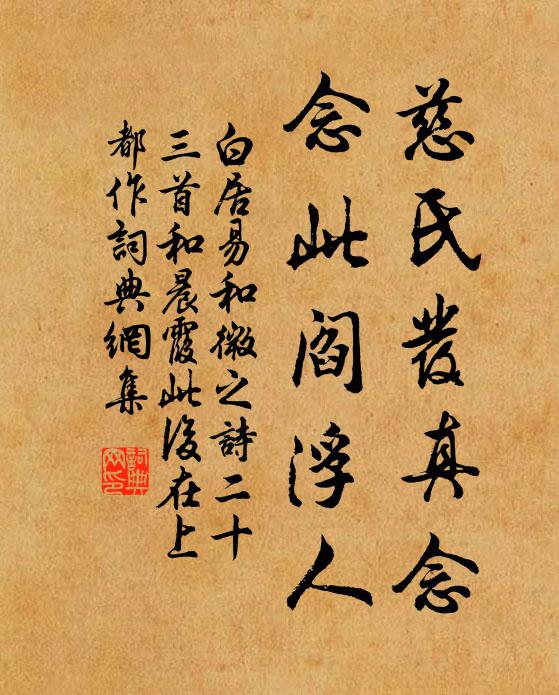 慈氏發真念
念此閻浮人
白居易和微之詩二十
三首和晨霞此後在上
都作詞典網集
詞典網印